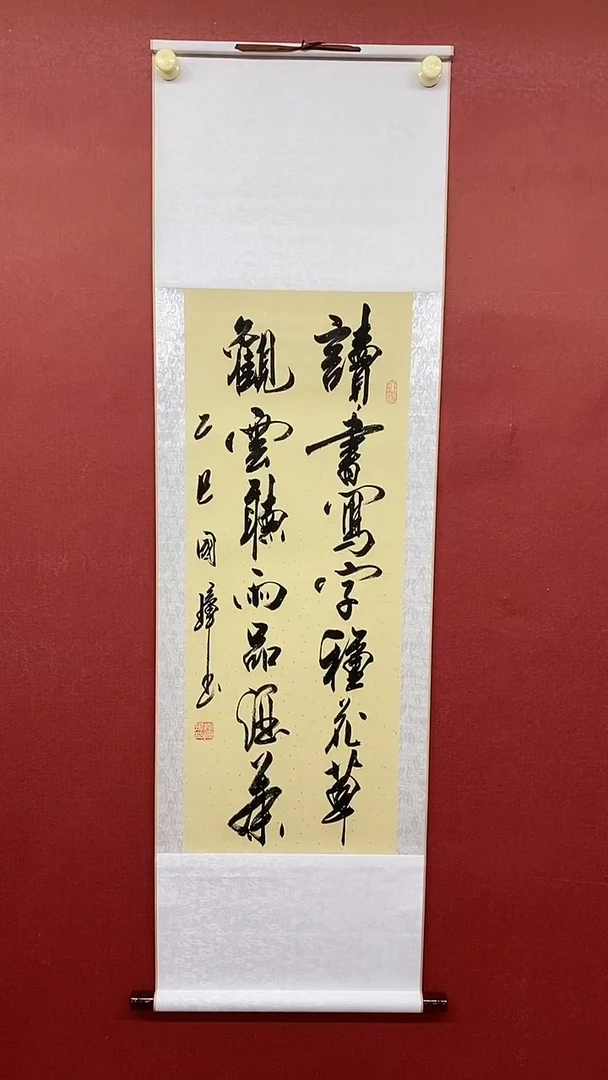 讀書寫字種花草
觀雲聽雨品酒茶
乙巳國璋書